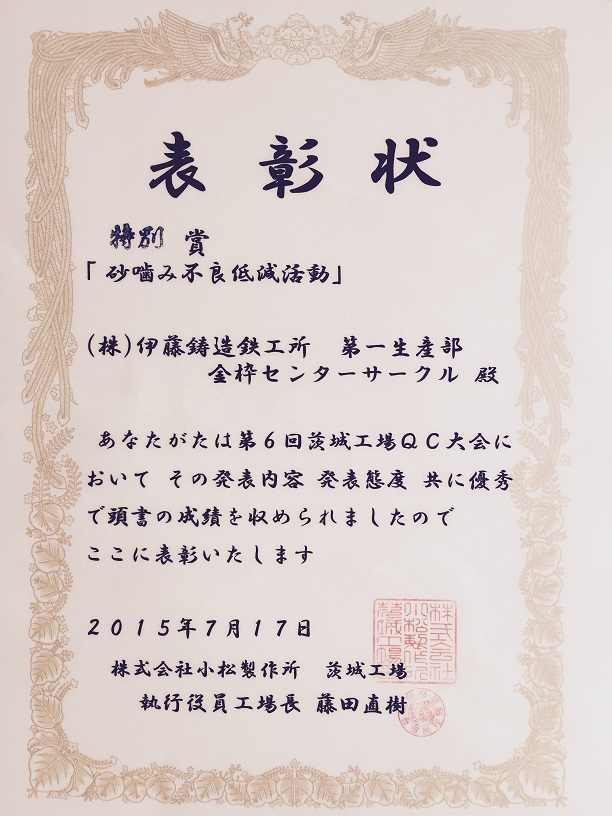 表彰状
特別 賞
「砂噛み不良低減活動」
(株)伊藤鋳造鉄工所 第一生産部
金枠センターサークル 殿
あなたがたは第6回茨城工場QC大会に
おいて その発表内容 発表態度 共に優秀
で頭書の成績を収められましたので
ここに表彰いたします
2015年7月17日
株式会社小松製作所 茨城工場
執行役員工場長 藤田直樹
株式会社
小松製作所
茨城工場